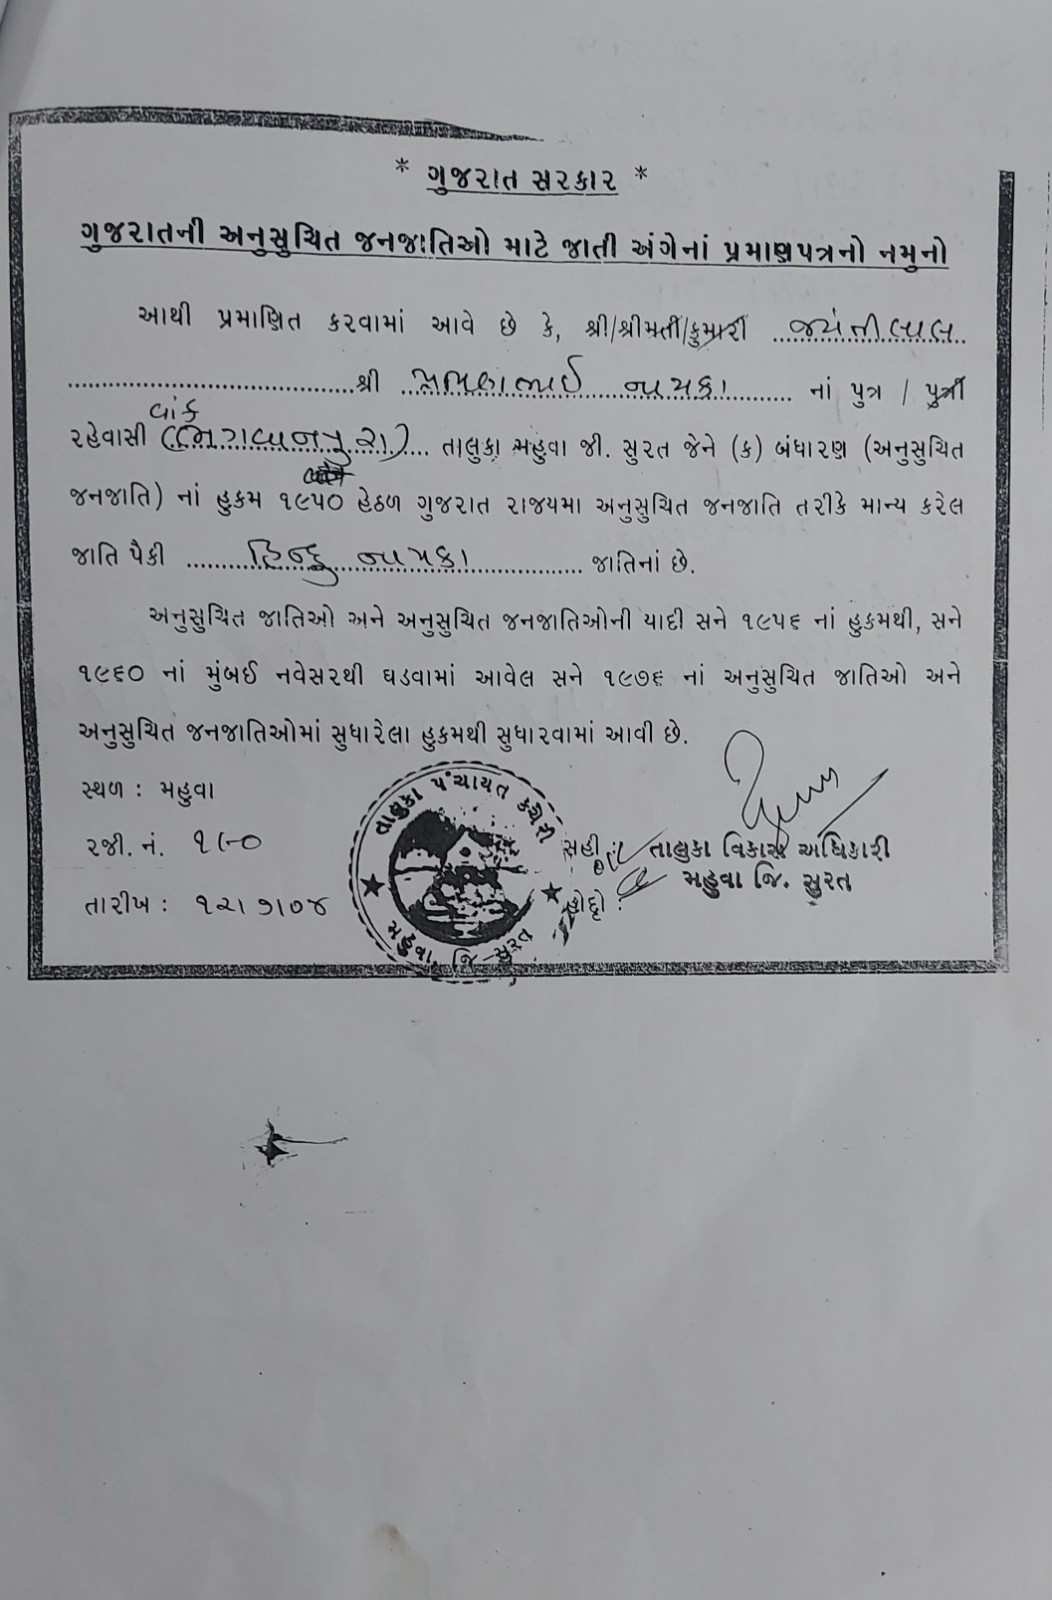 * ગુજરાત સરકાર *
ગુજરાતની અનુસુચિત જનજાતિઓ માટે જાતી અંગેનાં પ્રમાણપત્રનો નમુનો
આથી પ્રમાણિત કરવામાં આવે છે કે, શ્રી/શ્રીમતી/કુમારી જયંતીલાલ
શ્રી નાયકા નાં પુત્ર / પુત્રી
વાંક
રહેવાસી તાલુકા મહુવા જી. સુરત જેને (ક) બંધારણ (અનુસુચિત
જનજાતિ) નાં હુકમ ૧૯૫૦ હેઠળ ગુજરાત રાજયમા અનુસુચિત જનજાતિ તરીકે માન્ય કરેલ
જાતિ પૈકી હિન્દુ નાયકા જાતિનાં છે.
અનુસુચિત જાતિઓ અને અનુસુચિત જનજાતિઓની યાદી સને ૧૯૫૬ નાં હુકમથી, સને
૧૯૬૦ નાં મુંબઈ નવેસરથી ઘડવામાં આવેલ સને ૧૯૭૬ નાં અનુસુચિત જાતિઓ અને
અનુસુચિત જનજાતિઓમાં સુધારેલા હુકમથી સુધારવામાં આવી છે.
સ્થળ : મહુવા
રજી. નં.
તારીખ : ૧૨/૭/૦૪
તાલુકા પંચાયત કચેરી
મહુવા, જિ-સુરત
સહી : તાલુકા વિકાસ અધિકારી
મહુવા જિ. સુરત
હોદ્દો :